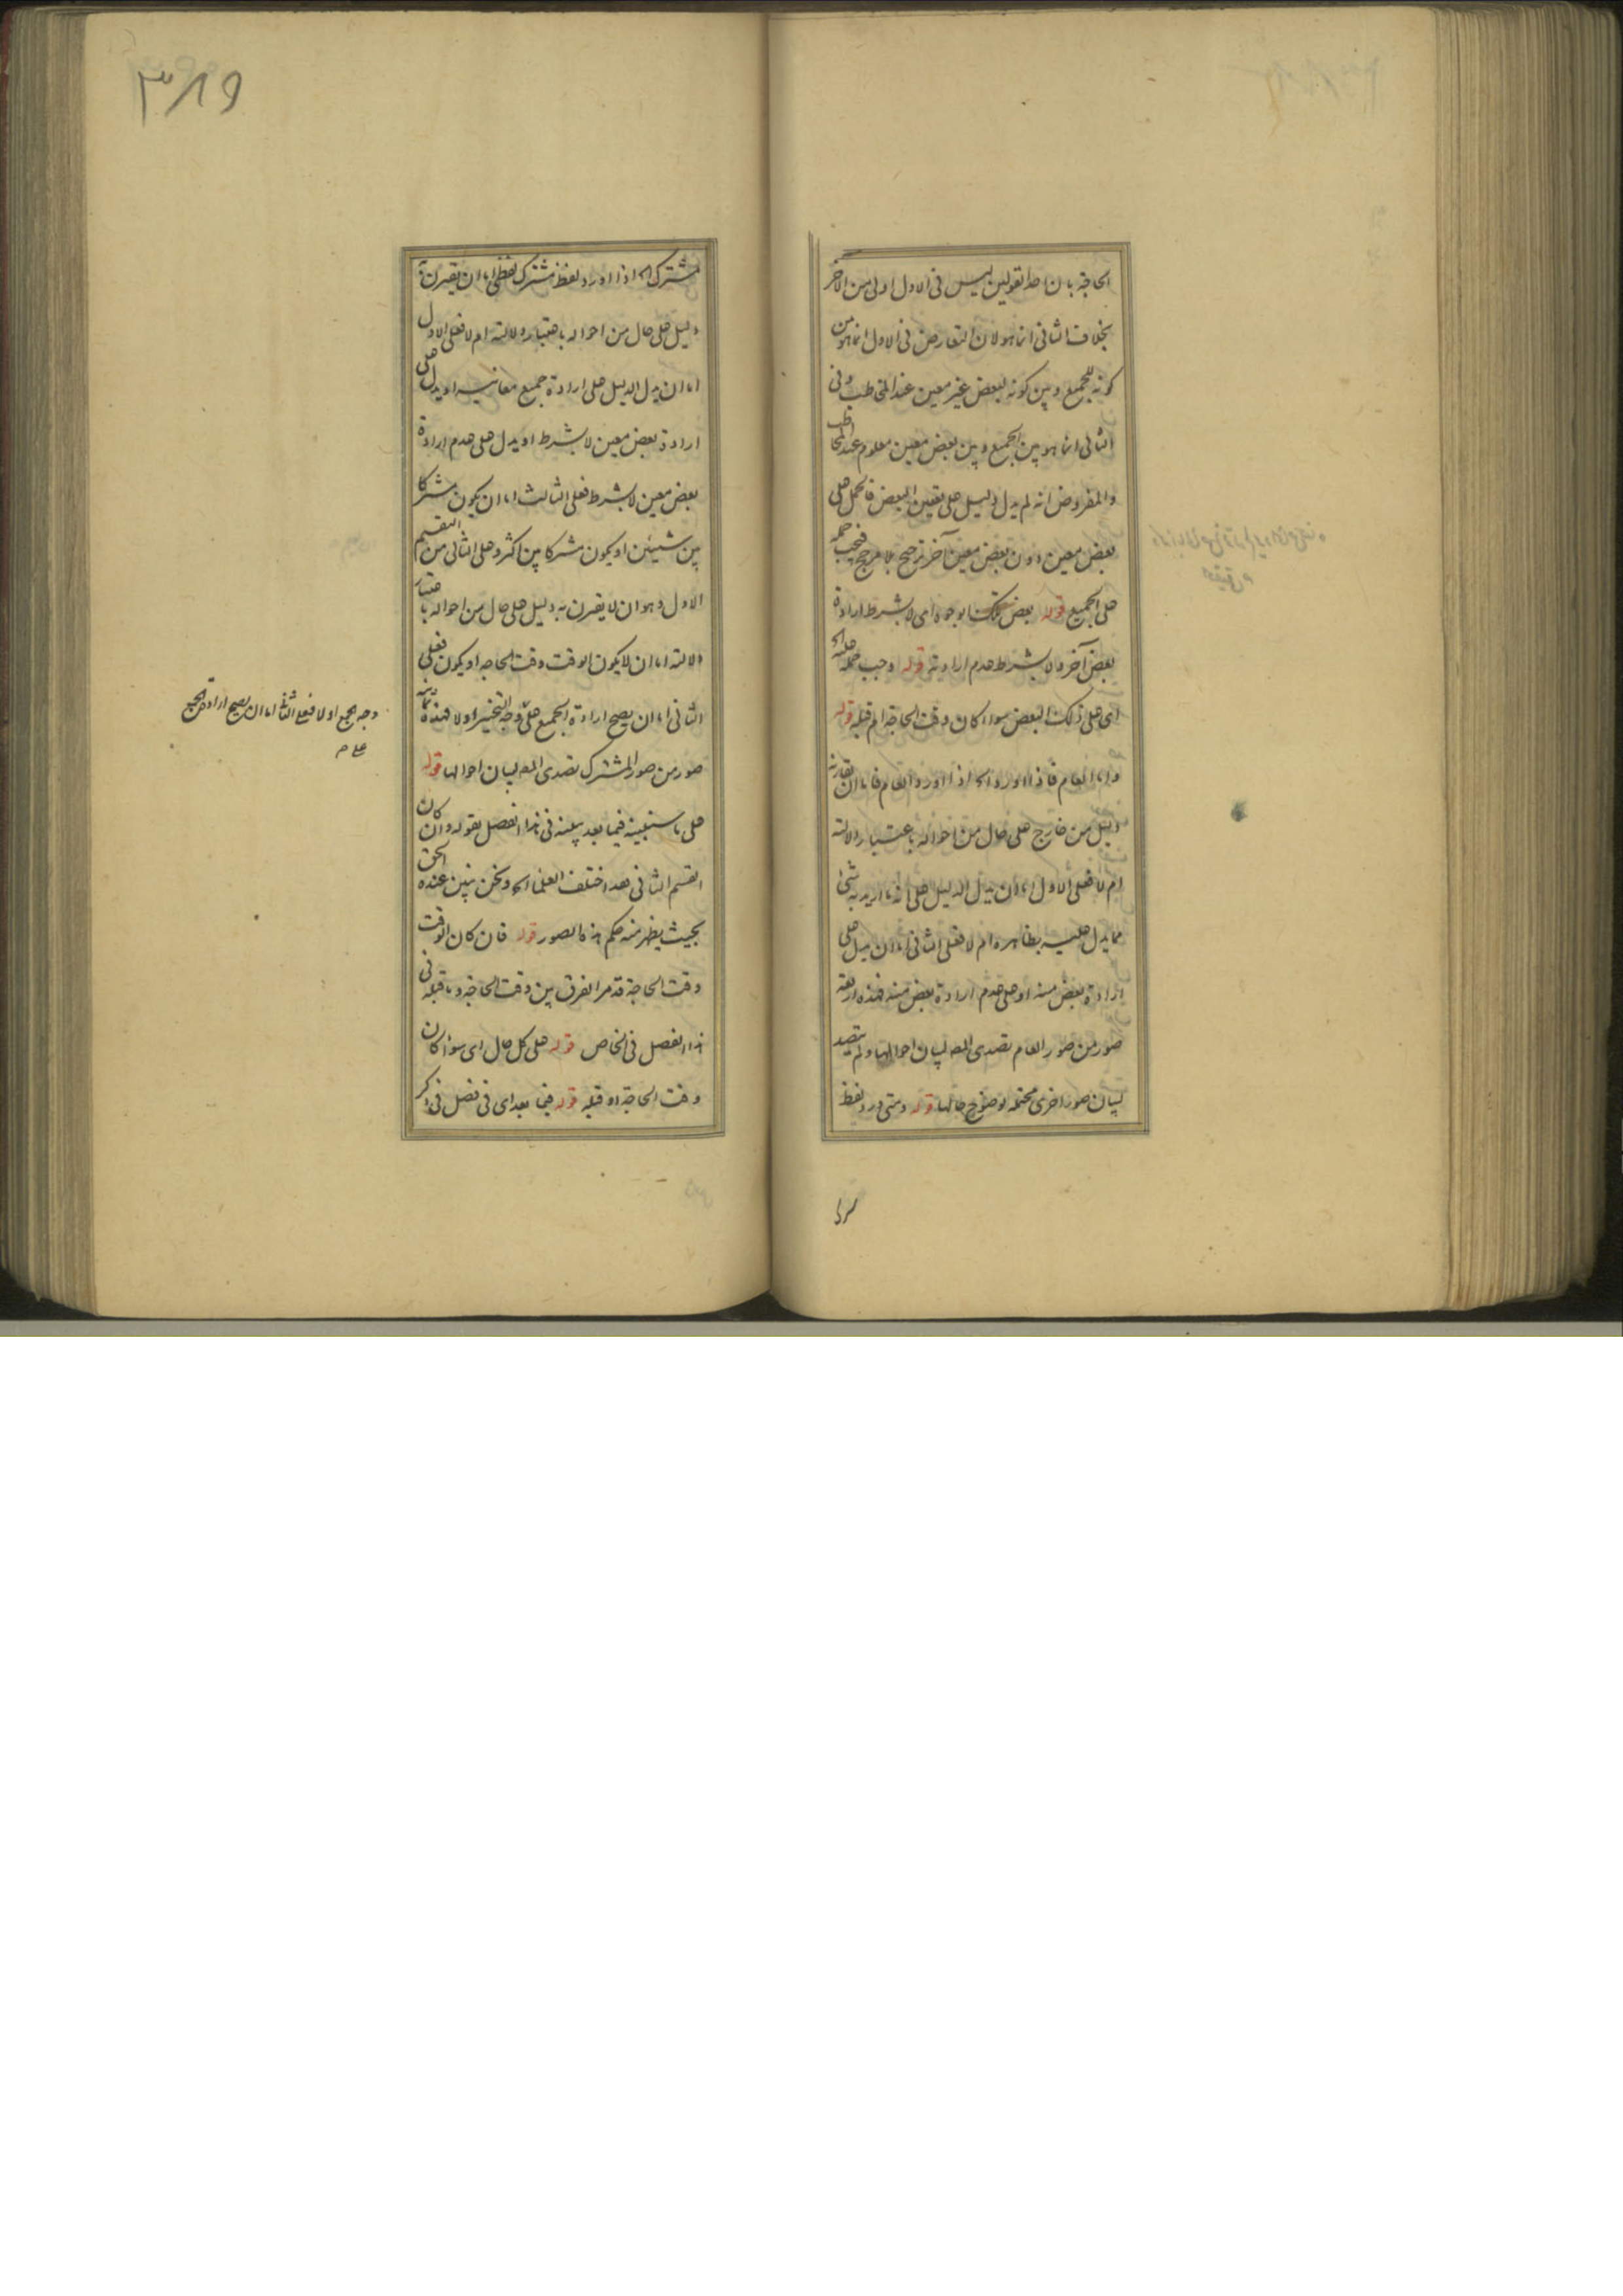 الحاجة بان احد القولين ليس فى الاول اولى من الآخر
بخلاف الثانى انما هو لان التعارض فى الاول انما هو من
كونه للجميع وبين كونه لبعض غير معين عند المخاطب وفى
الثانى انما هو بين الجميع وبين بعض معين معلوم عند المخاطب
والمفروض انه لم يدل دليل على تعيين البعض فالحمل على
بعض معين دون بعض معين آخر ترجيح بلا مرجح فيجب حمله
على الجميع قوله بعض تلك الوجوه اى لا بشرط ارادة
بعض آخر ولا بشرط عدم ارادته قوله وجب حمله عليه الخ
اى على ذلك البعض سواء كان وقت الحاجة ام قبله قوله
واما العام فاذا اورد الخ اذا اورد العام فاما ان يقارنه
دليل من خارج على حال من احواله باعتبار دلالته
ام لا فعلى الاول اما ان يدل الدليل على انه ما اريد به شئ
مما يدل عليه بظاهره ام لا فعلى الثانى اما ان يدل على
ارادة بعض منه او على عدم ارادة بعض منه فهذه اربعة
صور من صور العام تصدى المص لبيان احوالها ولم يتصد
لبيان صور اخرى محتملة لوضوح حالها قوله ومتى ورد لفظ
مشترك الخ اذا اورد لفظ مشترك لفظى اما ان يقترن به
دليل على حال من احواله باعتبار دلالته ام لا فعلى الاول
اما ان يدل الدليل على ارادة جميع معانيه او يدل على
ارادة بعض معين لا بشرط او يدل على عدم ارادة
بعض معين لا بشرط فعلى الثالث اما ان يكون مشتركا
بين شيئين او يكون مشتركا بين اكثر وعلى الثانى من التقسيم
الاول وهو ان لا يقترن به دليل على حال من احواله باعتبار
دلالته اما ان لا يكون الوقت وقت الحاجه او يكون فعلى
الثانى اما ان يصح ارادة الجميع على وجه التخيير او لا فهذه ثمانية
صور من صور المشترك تصدى المص لبيان احوالها قوله
على ما سنبينه فيما بعد يبينه فى هذا الفصل بقوله وان كان
القسم الثانى فقد اختلف العلماء الخ ونحن نبين عنده الحق
بحيث يظهر منه حكم هذه الصور قوله فان كان الوقت
وقت الحاجة قد مر الفرق بين وقت الحاجة وما قبله فى
هذا الفصل فى الخاص قوله على كل حال اى سواء كان
وقت الحاجة او قبله قوله فيما بعد اى فى فصل فى ذكر
وجه الجمع او لا فعلى الثانى اما ان يصح ارادة الجميع
على صح
٣٨٩